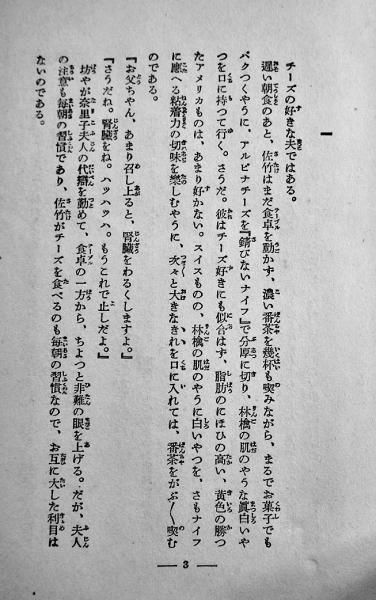 一
チーズの好きな夫ではある。
遅い朝食のあと、佐竹はまだ食卓を動かず、濃い番茶を幾杯も喫みながら、まるでお菓子でも
パクつくやうに、アルピナチーズを『錆びないナイフ』で分厚に切り、林檎の肌のやうな眞白いや
つを口に持つて行く。さうだ。彼はチーズ好きにも似合はず、脂肪のにほひの高い、黄色の勝つ
たアメリカものは、あまり好かない。スイスものの、林檎の肌のやうに白いやつを、さもナイフ
に應へる粘着力の切味を樂しむやうに、次々と大きなきれを口に入れては、番茶をがぶ〳〵喫む
のである。
『お父ちやん、あまり召し上ると、腎臓をわるくしますよ。』
『さうだね。腎臓をね。ハツハツハ。もうこれで止しだよ。』
坊やが奈里子夫人の代辯を勤めて、食卓の一方から、ちよつと非難の眼を上げる。だが、夫人
の注意も毎朝の習慣であり、佐竹がチーズを食べるのも毎朝の習慣なので、お互に大した利目は
ないのである。
— 3 —